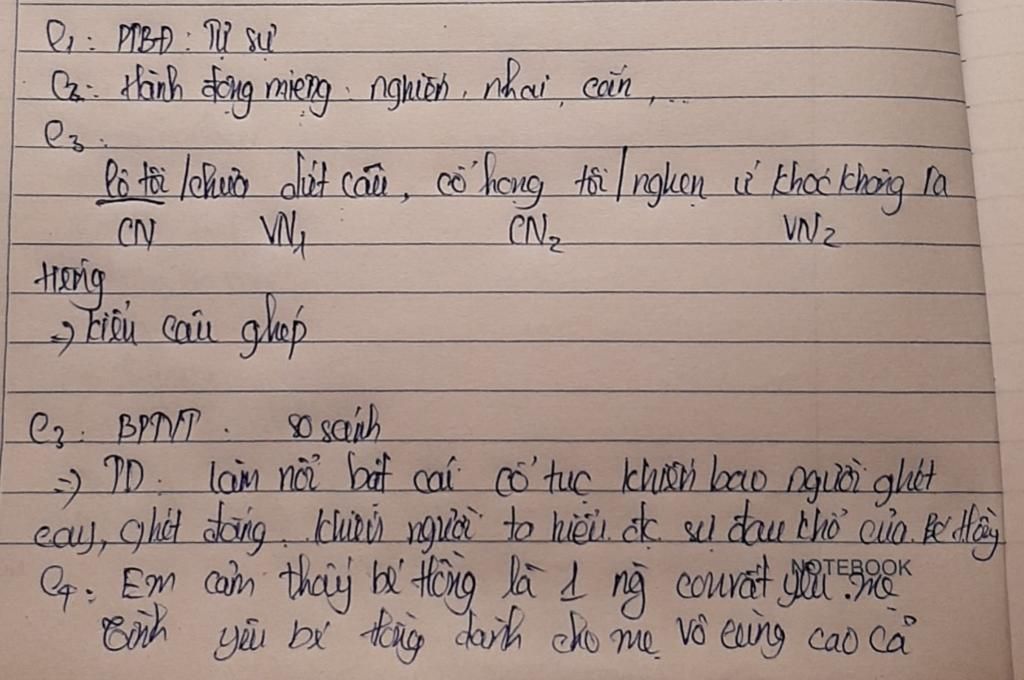 C1: PTBĐ: Tự sự
C2: Hành động miệng: nghiến, nhai, cắn, ...
C3:
Cô tôi/chưa dứt câu, cổ họng tôi/nghẹn ứ khóc không ra
CN VN1 CN2 VN2
tiếng
=> kiểu câu ghép
C3: BPTNT: so sánh
=> TD: làm nổi bật cái cổ tục khiến bao người ghét
cay, ghét đắng. khiến người ta hiểu đk sự đau khổ của bé Hồng
C4: Em cảm thấy bé Hồng là 1 ng con rất yêu mẹ
NOTEBOOK
Tình yêu bé Hồng dành cho mẹ vô cùng cao cả